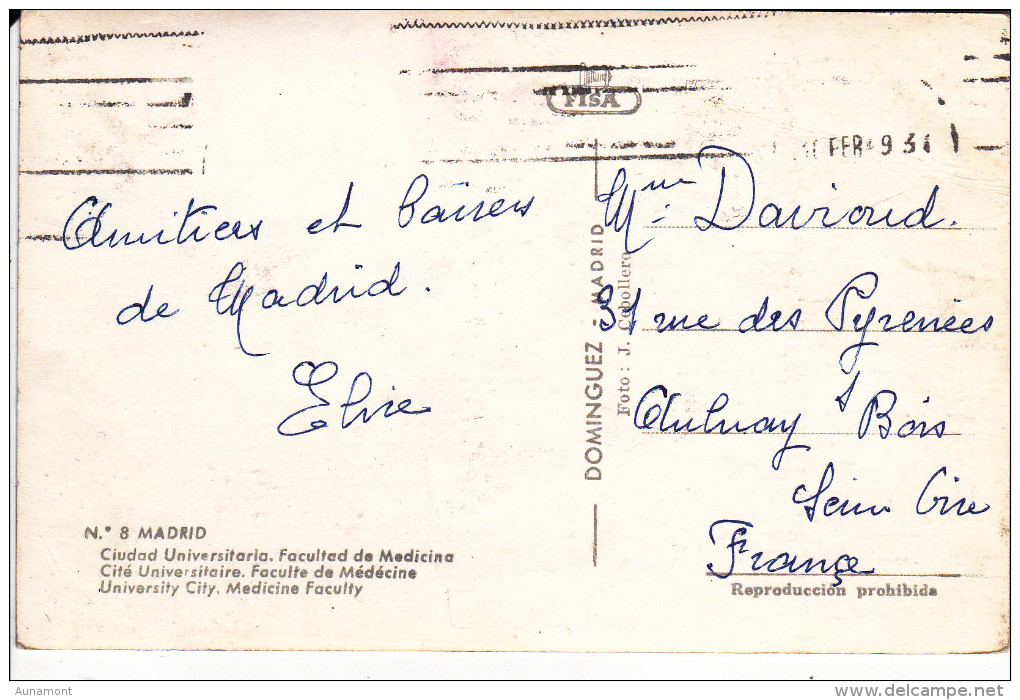 FISA
FEB 931
Amitiers et baisers
de Madrid.
Elvire
Mme Davioud.
31 rue des Pyrenées
Aulnay s/ Bois
Seine Oise
France
DOMINGUEZ - MADRID
Foto: J. Cebollero
N.° 8 MADRID
Ciudad Universitaria. Facultad de Medicina
Cité Universitaire. Faculte de Médécine
University City. Medicine Faculty
Reproducción prohibida
Aunamont
www.delcampe.net